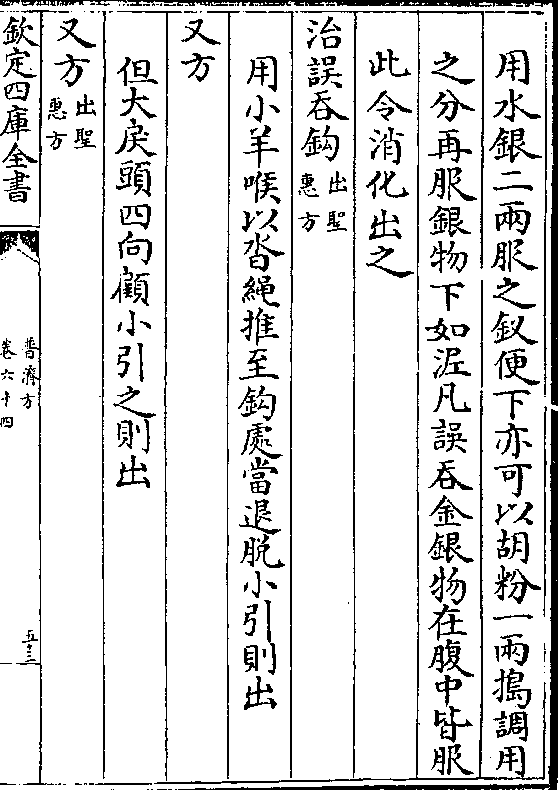 用水銀二兩服之釵便下亦可以胡粉一兩搗調用
之分再服銀物下如泥凡誤吞金銀物在腹中皆服
此令消化出之
治誤吞鈎出聖惠方
用小羊喉以沓繩推至鈎處當退脫小引則出
又方
但大戾頭四向顧小引之則出
又方出聖惠方
欽定四庫全書
普濟方
卷六十四
五十三